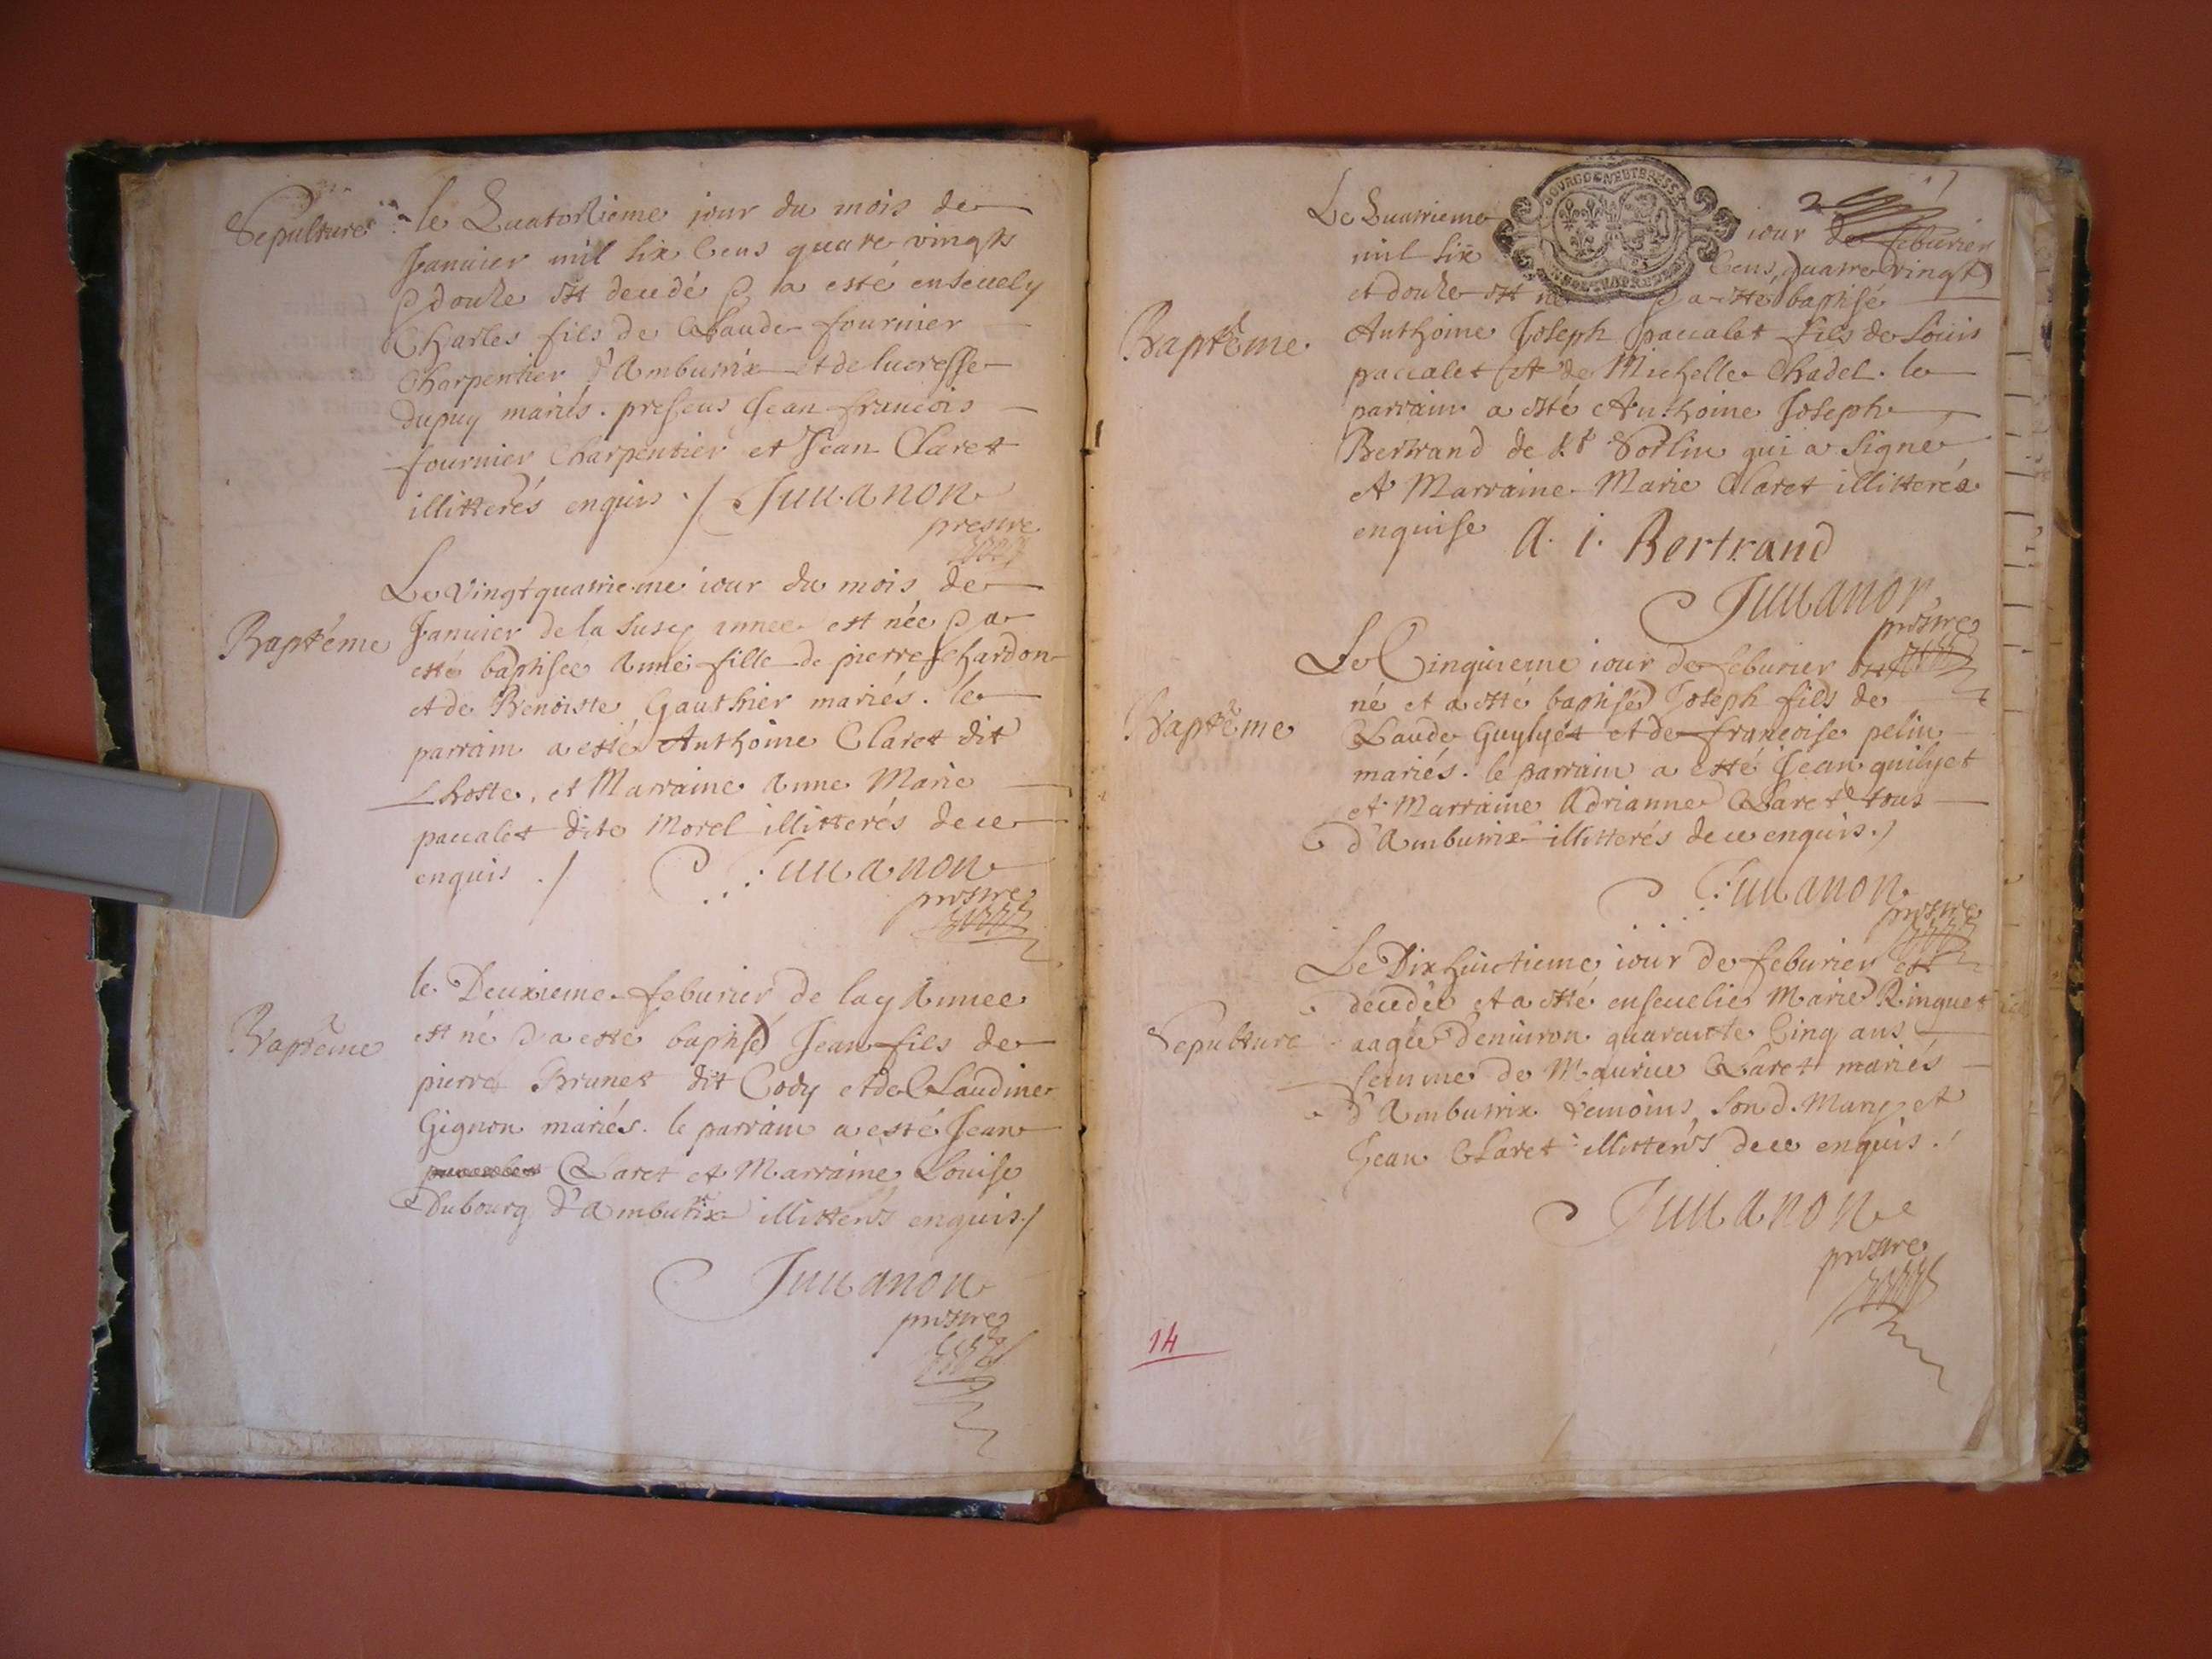 Sepulture
le Quatorzieme jour du mois de
Januier mil six Cens quatre vingts
& douze est decedé & a esté enseuely
Charles fils de Claude fournier
Charpentier d'Ambutrix et de lucresse
dupuy mariés. presens Jean francois
fournier Charpentier et Jean Claret
illitterés enquis ./ Juuanon
prestre
Baptéme
Le Vingt quatrieme iour du mois de
Januier de la susd annee est née & a
esté baptisée Anne fille de pierre Chardon
et de Benoiste Gauthier mariés. le
parrain a esté Anthoine Claret dit
Lhoste, et Marraine Anne Marie
paccalet dite Morel illitterés de ce
enquis ./ Juuanon
prestre
Baptéme
le Deuxieme feburier de lad Annee
est né & a esté baptisé Jean fils de
pierre Brunet dit Cody et de Claudine
Gignon mariés. le parrain a esté Jean
Claret et Marraine Louise
Dubourg d'Ambutrix illitterés enquis./
Juuanon
prestre
BOURGOGNE ET BRESSE
2
Le Quatrieme iour de feburier
mil six Cens quatre vingt
et douze est né & a esté baptisé
Baptéme
Anthoine Joseph paccalet fils de Louis
paccalet et de Michelle Chadel. le
parrain a esté Anthoine Joseph
Bertrand de St Sorlin qui a signé
et Marraine Marie Claret illitterée
enquise A. i. Bertrand
Juuanon
prestre
Le Cinquieme iour de feburier est
Baptéme
né et a esté baptisé Joseph fils de
Claude Guylyet et de francoise pelin
mariés. le parrain a esté Jean guilyet
et Marraine Adrianne Claret tous
d'Ambutrix illitterés de ce enquis./
Juuanon
prestre
Le Dix huictieme iour de feburier est
decedée et a esté enseuelie Marie Ringuet
Sepulture
aagée d'enuiron quarante Cinq ans
femme de Maurice Claret mariés
d'Ambutrix temoins son d. Mary et
Jean Claret illitterés de ce enquis./
Juuanon
prestre
14